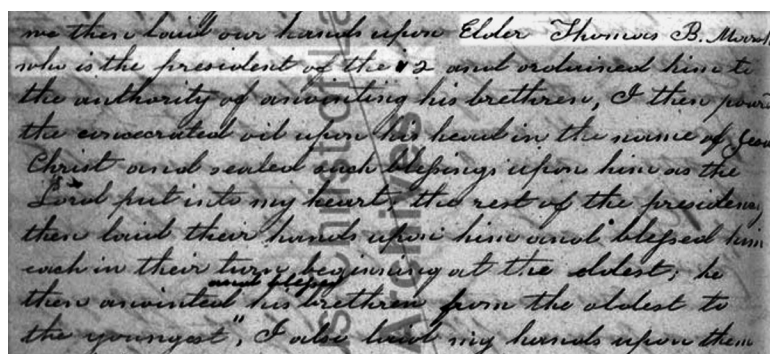 we then laid our hands upon Elder Thomas B. Marsh
who is the president of the 12 and ordained him to
the authority of anointing his brethren, I then poured
the concecrated oil upon his head in the name of Jesus
Christ and sealed such blessings upon him as the
Lord put into my heart; the rest of the presidency
then laid their hands upon him and blessed him
each in their turn beginning at the eldest; he
and blessed
then anointed his brethren from the oldest to
the youngest", I also laid my hands upon them
Christ of La
Archives